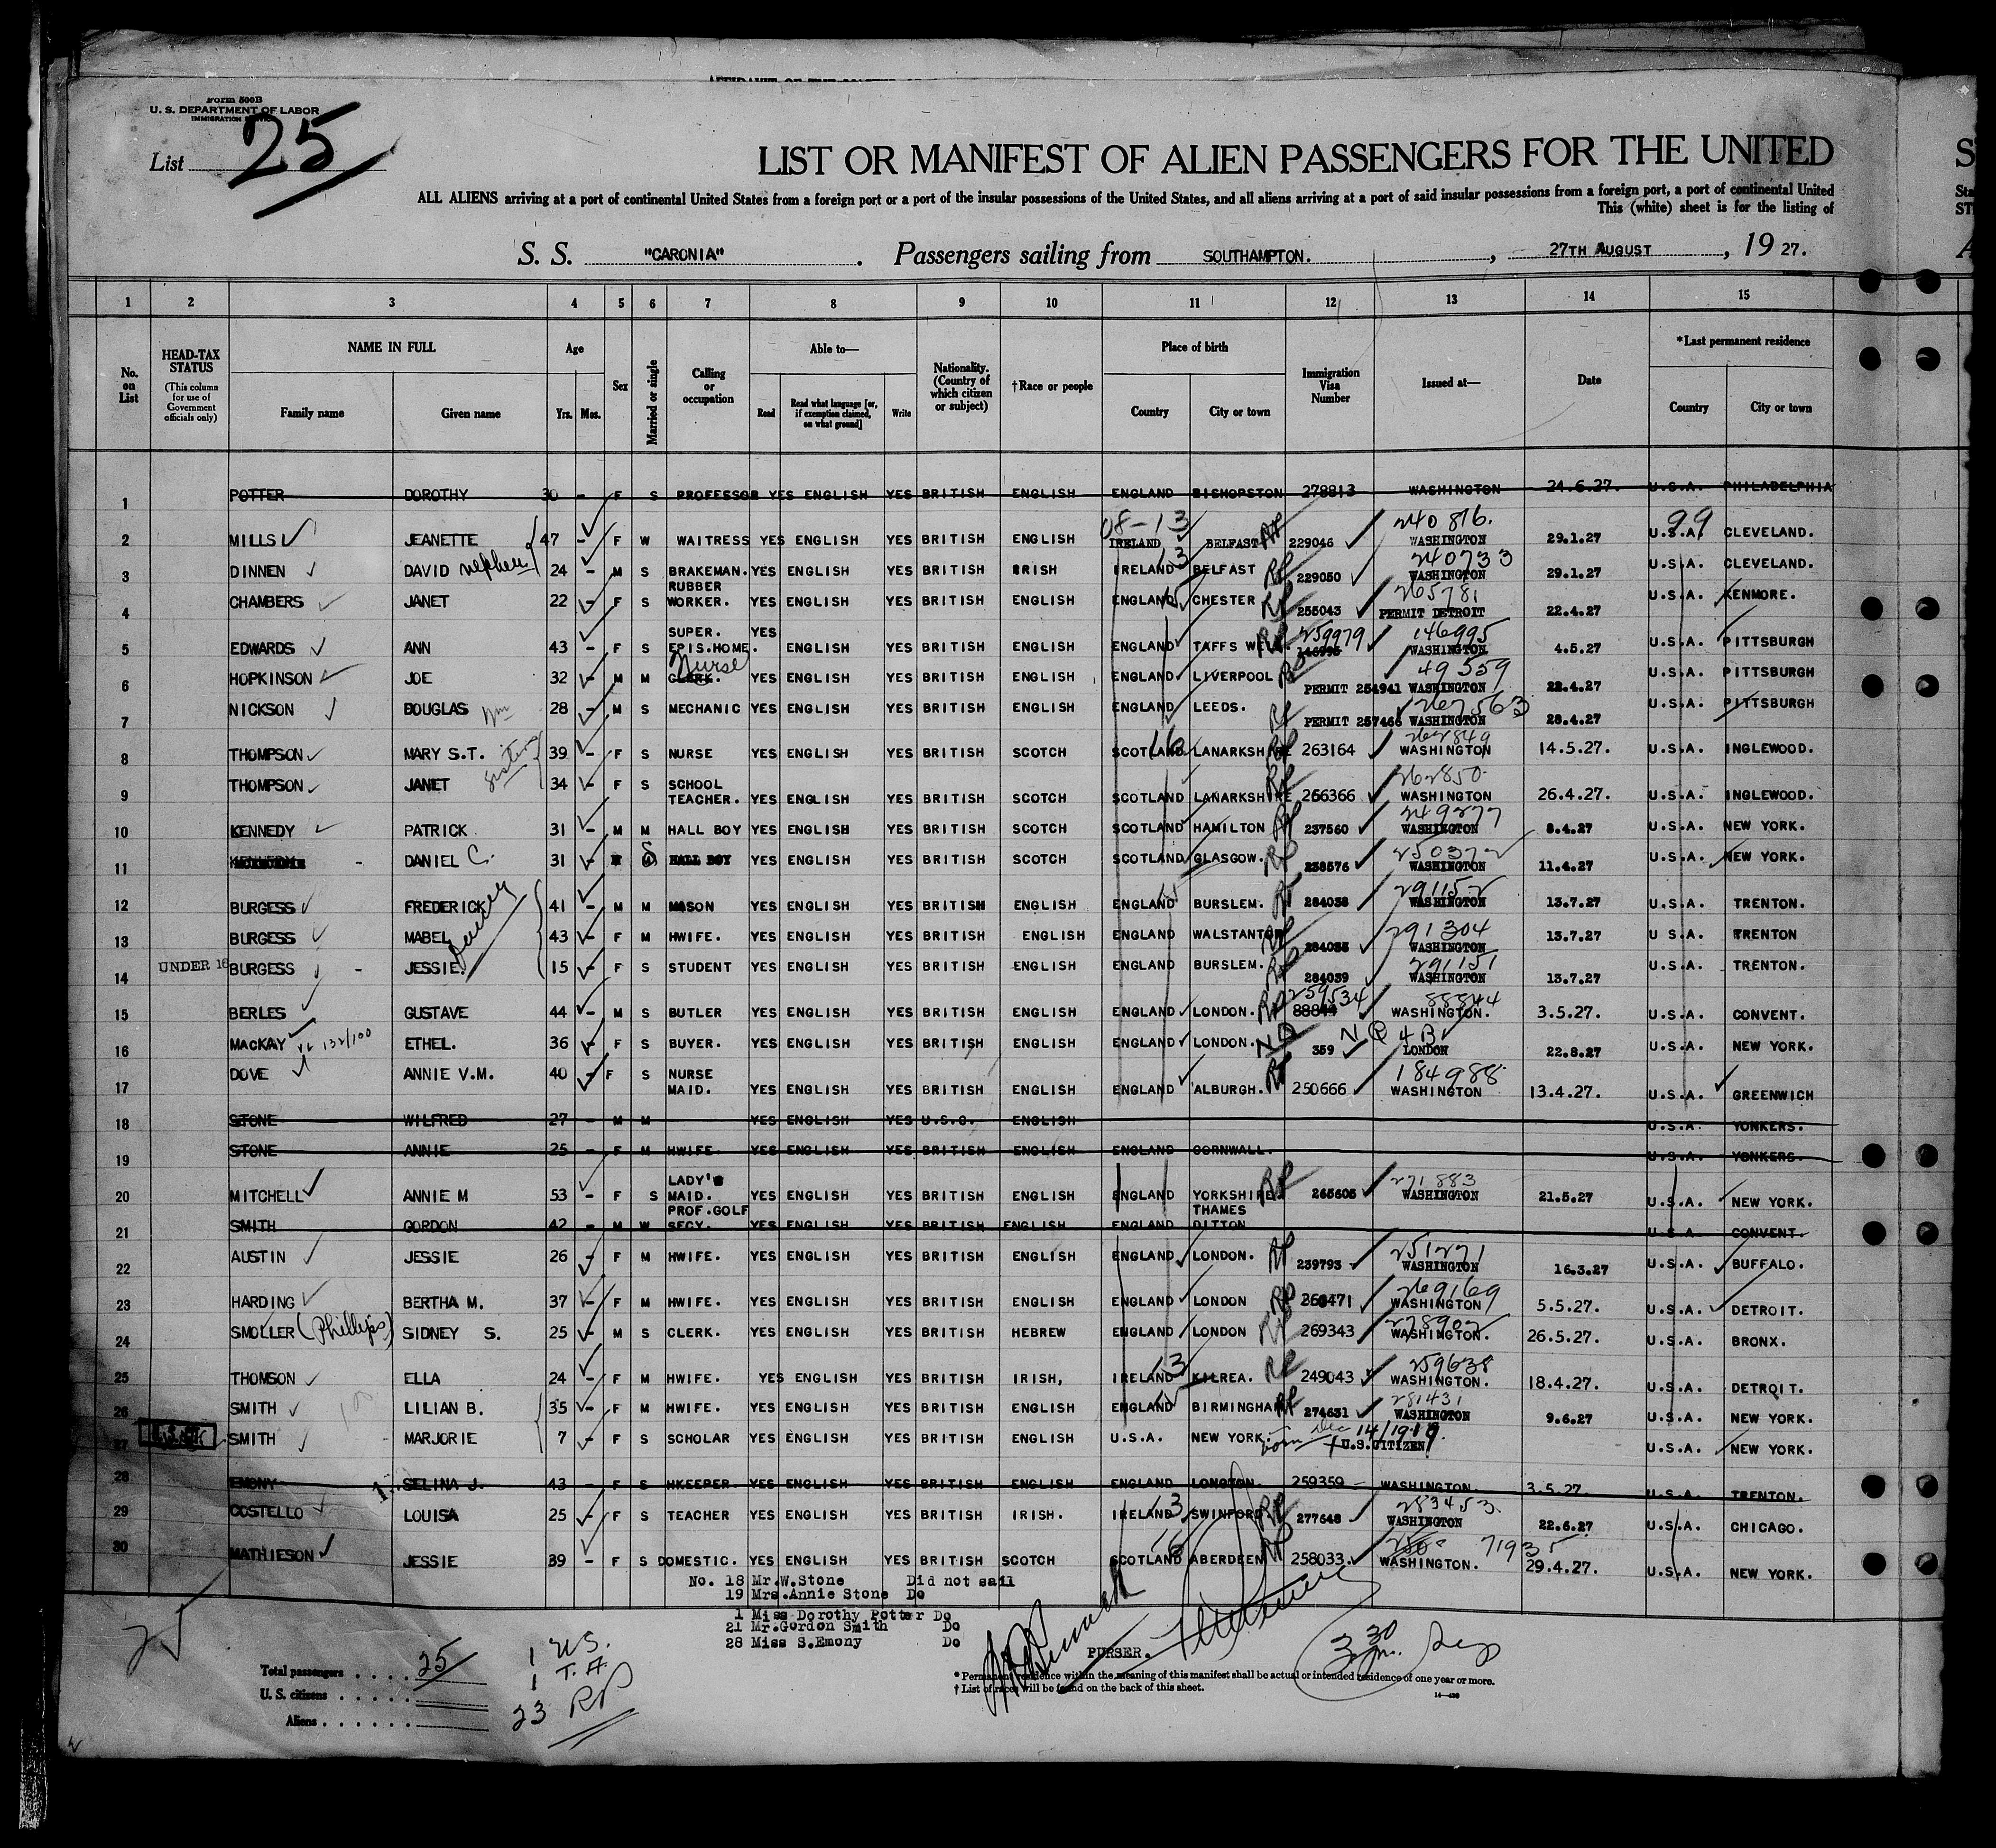 Form 500B
U. S. DEPARTMENT OF LABOR
IMMIGRATION SERVICE
List 25
LIST OR MANIFEST OF ALIEN PASSENGERS FOR THE UNITED
ALL ALIENS arriving at a port of continental United States from a foreign port or a port of the insular possessions of the United States, and all aliens arriving at a port of said insular possessions from a foreign port, a port of continental United
This (white) sheet is for the listing of
S. S. "CARONIA" . Passengers sailing from SOUTHAMPTON. , 27TH AUGUST , 19 27.
1 2 3 4 5 6 7 8 9 10 11 12 13 14 15
No. on List
HEAD-TAX STATUS (This column for use of Government officials only)
NAME IN FULL Family name Given name
Age Yrs. Mos.
Sex
Married or single
Calling or occupation
Able to— Read Read what language [or, if exemption claimed, on what ground] Write
Nationality. (Country of which citizen or subject)
†Race or people
Place of birth Country City or town
Immigration Visa Number
Issued at—
Date
*Last permanent residence Country City or town
1 POTTER DOROTHY 30 - F S PROFESSOR YES ENGLISH YES BRITISH ENGLISH ENGLAND BISHOPSTON 278813 WASHINGTON 24.6.27. U.S.A. PHILADELPHIA
08-13 240816. 99
2 MILLS JEANETTE 47 - F W WAITRESS YES ENGLISH YES BRITISH ENGLISH IRELAND BELFAST 229046 WASHINGTON 29.1.27 U.S.A. CLEVELAND.
3 DINNEN DAVID nephew 24 - M S BRAKEMAN. YES ENGLISH YES BRITISH IRISH IRELAND 13 BELFAST RP 229050 240733 WASHINGTON 29.1.27 U.S.A. CLEVELAND.
4 CHAMBERS JANET 22 - F S RUBBER WORKER. YES ENGLISH YES BRITISH ENGLISH ENGLAND 15 CHESTER RP 255043 265781 PERMIT DETROIT 22.4.27 U.S.A. KENMORE.
5 EDWARDS ANN 43 - F S SUPER. EPIS.HOME. YES ENGLISH YES BRITISH ENGLISH ENGLAND TAFFS WELL RP 259979 146995 WASHINGTON. 4.5.27 U.S.A. PITTSBURGH
6 HOPKINSON JOE 32 - M M CLERK. Nurse YES ENGLISH YES BRITISH ENGLISH ENGLAND LIVERPOOL RP PERMIT 254941 49559 WASHINGTON 22.4.27 U.S.A. PITTSBURGH
7 NICKSON DOUGLAS Wm 28 - M S MECHANIC YES ENGLISH YES BRITISH ENGLISH ENGLAND LEEDS. RP PERMIT 257466 267563 WASHINGTON 28.4.27 U.S.A. PITTSBURGH
8 THOMPSON MARY S.T. 39 - F S NURSE YES ENGLISH YES BRITISH SCOTCH SCOTLAND 16 LANARKSHIRE RP 263164 262849 WASHINGTON 14.5.27. U.S.A. INGLEWOOD.
sisters
9 THOMPSON JANET 34 - F S SCHOOL TEACHER. YES ENGLISH YES BRITISH SCOTCH SCOTLAND LANARKSHIRE RP 256366 262850 WASHINGTON 26.4.27. U.S.A. INGLEWOOD.
10 KENNEDY PATRICK 31 - M M HALL BOY YES ENGLISH YES BRITISH SCOTCH SCOTLAND HAMILTON RP 237560 249277 WASHINGTON 8.4.27 U.S.A. NEW YORK.
11 - DANIEL C. 31 - S HALL BOY YES ENGLISH YES BRITISH SCOTCH SCOTLAND GLASGOW. RP 238576 250372 WASHINGTON 11.4.27 U.S.A. NEW YORK.
12 BURGESS FREDERICK 41 - M M MASON YES ENGLISH YES BRITISH ENGLISH ENGLAND 15 BURSLEM. RP 284038 291152 WASHINGTON 13.7.27 U.S.A. TRENTON.
family
13 BURGESS MABEL 43 - F M HWIFE. YES ENGLISH YES BRITISH ENGLISH ENGLAND WALSTANTON RP 284035 291304 WASHINGTON 13.7.27 U S.A. TRENTON
14 UNDER 16 BURGESS - JESSIE. 15 - F S STUDENT YES ENGLISH YES BRITISH ENGLISH ENGLAND BURSLEM. RP 284039 291151 WASHINGTON 13.7.27 U.S.A. TRENTON.
15 BERLES GUSTAVE 44 - M S BUTLER YES ENGLISH YES BRITISH ENGLISH ENGLAND LONDON. RP 259534 88844 88844 WASHINGTON. 3.5.27. U.S.A. CONVENT.
16 MACKAY 132/100 ETHEL. 36 - F S BUYER. YES ENGLISH YES BRITISH ENGLISH ENGLAND LONDON. 359 LONDON 22.8.27 U.S.A. NEW YORK.
17 DOVE ANNIE V.M. 40 - F S NURSE MAID. YES ENGLISH YES BRITISH ENGLISH ENGLAND ALBURGH. RP 250666 184988 WASHINGTON 13.4.27. U.S.A. GREENWICH
18 STONE WILFRED 27 - M M YES ENGLISH YES U.S.C. ENGLISH U.S.A. YONKERS.
19 STONE ANNIE 25 - F M HWIFE YES ENGLISH YES BRITISH ENGLISH ENGLAND CORNWALL. U.S.A. YONKERS.
20 MITCHELL ANNIE M 53 - F S LADY'S MAID. YES ENGLISH YES BRITISH ENGLISH ENGLAND YORKSHIRE. RP 265605 271883 WASHINGTON 21.5.27 U.S.A. NEW YORK.
21 SMITH GORDON 42 - M W PROF.GOLF SECY. YES ENGLISH YES BRITISH ENGLISH ENGLAND THAMES DITTON U.S.A. CONVENT.
22 AUSTIN JESSIE 26 - F M HWIFE. YES ENGLISH YES BRITISH ENGLISH ENGLAND LONDON. RP 239793 251271 WASHINGTON 16.3.27 U.S.A. BUFFALO.
23 HARDING BERTHA M. 37 - F M HWIFE. YES ENGLISH YES BRITISH ENGLISH ENGLAND LONDON RP 269169 WASHINGTON 5.5.27. U.S.A. DETROIT.
24 SMOLLER (Phillips) SIDNEY S. 25 - M S CLERK. YES ENGLISH YES BRITISH HEBREW ENGLAND LONDON RP 269343 278902 WASHINGTON. 26.5.27. U.S.A. BRONX.
25 THOMSON ELLA 24 - F M HWIFE. YES ENGLISH YES BRITISH IRISH, IRELAND 13 KILREA. RP 249043 259638 WASHINGTON. 18.4.27. U.S.A. DETROIT.
26 SMITH LILIAN B. 35 - F M HWIFE. YES ENGLISH YES BRITISH ENGLISH ENGLAND 15 BIRMINGHAM RP 274631 281431 WASHINGTON 9.6.27 U.S.A. NEW YORK.
27 SMITH - MARJORIE 7 - F S SCHOLAR YES ENGLISH YES BRITISH ENGLISH U.S.A. NEW YORK. born Dec 14/1919. U.S.CITIZEN U.S.A. NEW YORK.
28 EMONY SELINA J. 43 - F S HKEEPER. YES ENGLISH YES BRITISH ENGLISH ENGLAND LONGTON. 259359 - WASHINGTON. 3.5.27. U.S.A. TRENTON.
29 COSTELLO LOUISA 25 - F S TEACHER YES ENGLISH YES BRITISH IRISH. IRELAND 13 SWINFORD. RP 277648 283453 WASHINGTON 22.6.27 U.S.A. CHICAGO.
30 MATHIESON JESSIE 39 - F S DOMESTIC. YES ENGLISH YES BRITISH SCOTCH SCOTLAND 16 ABERDEEN RP 258033. 71935 WASHINGTON. 29.4.27. U.S.A. NEW YORK.
No. 18 Mr.W.Stone Did not sail
19 Mrs.Annie Stone Do
1 Miss Dorothy Potter Do
21 Mr.Gordon Smith Do
28 Miss S.Emony Do
PURSER.
Total passengers . . . . 25
U. S. citizens . . . . .
Aliens . . . . . .
1 US.
1 T.A.
23 RP
3 30 pm.
* Permanent residence within the meaning of this manifest shall be actual or intended residence of one year or more.
† List of races will be found on the back of this sheet.